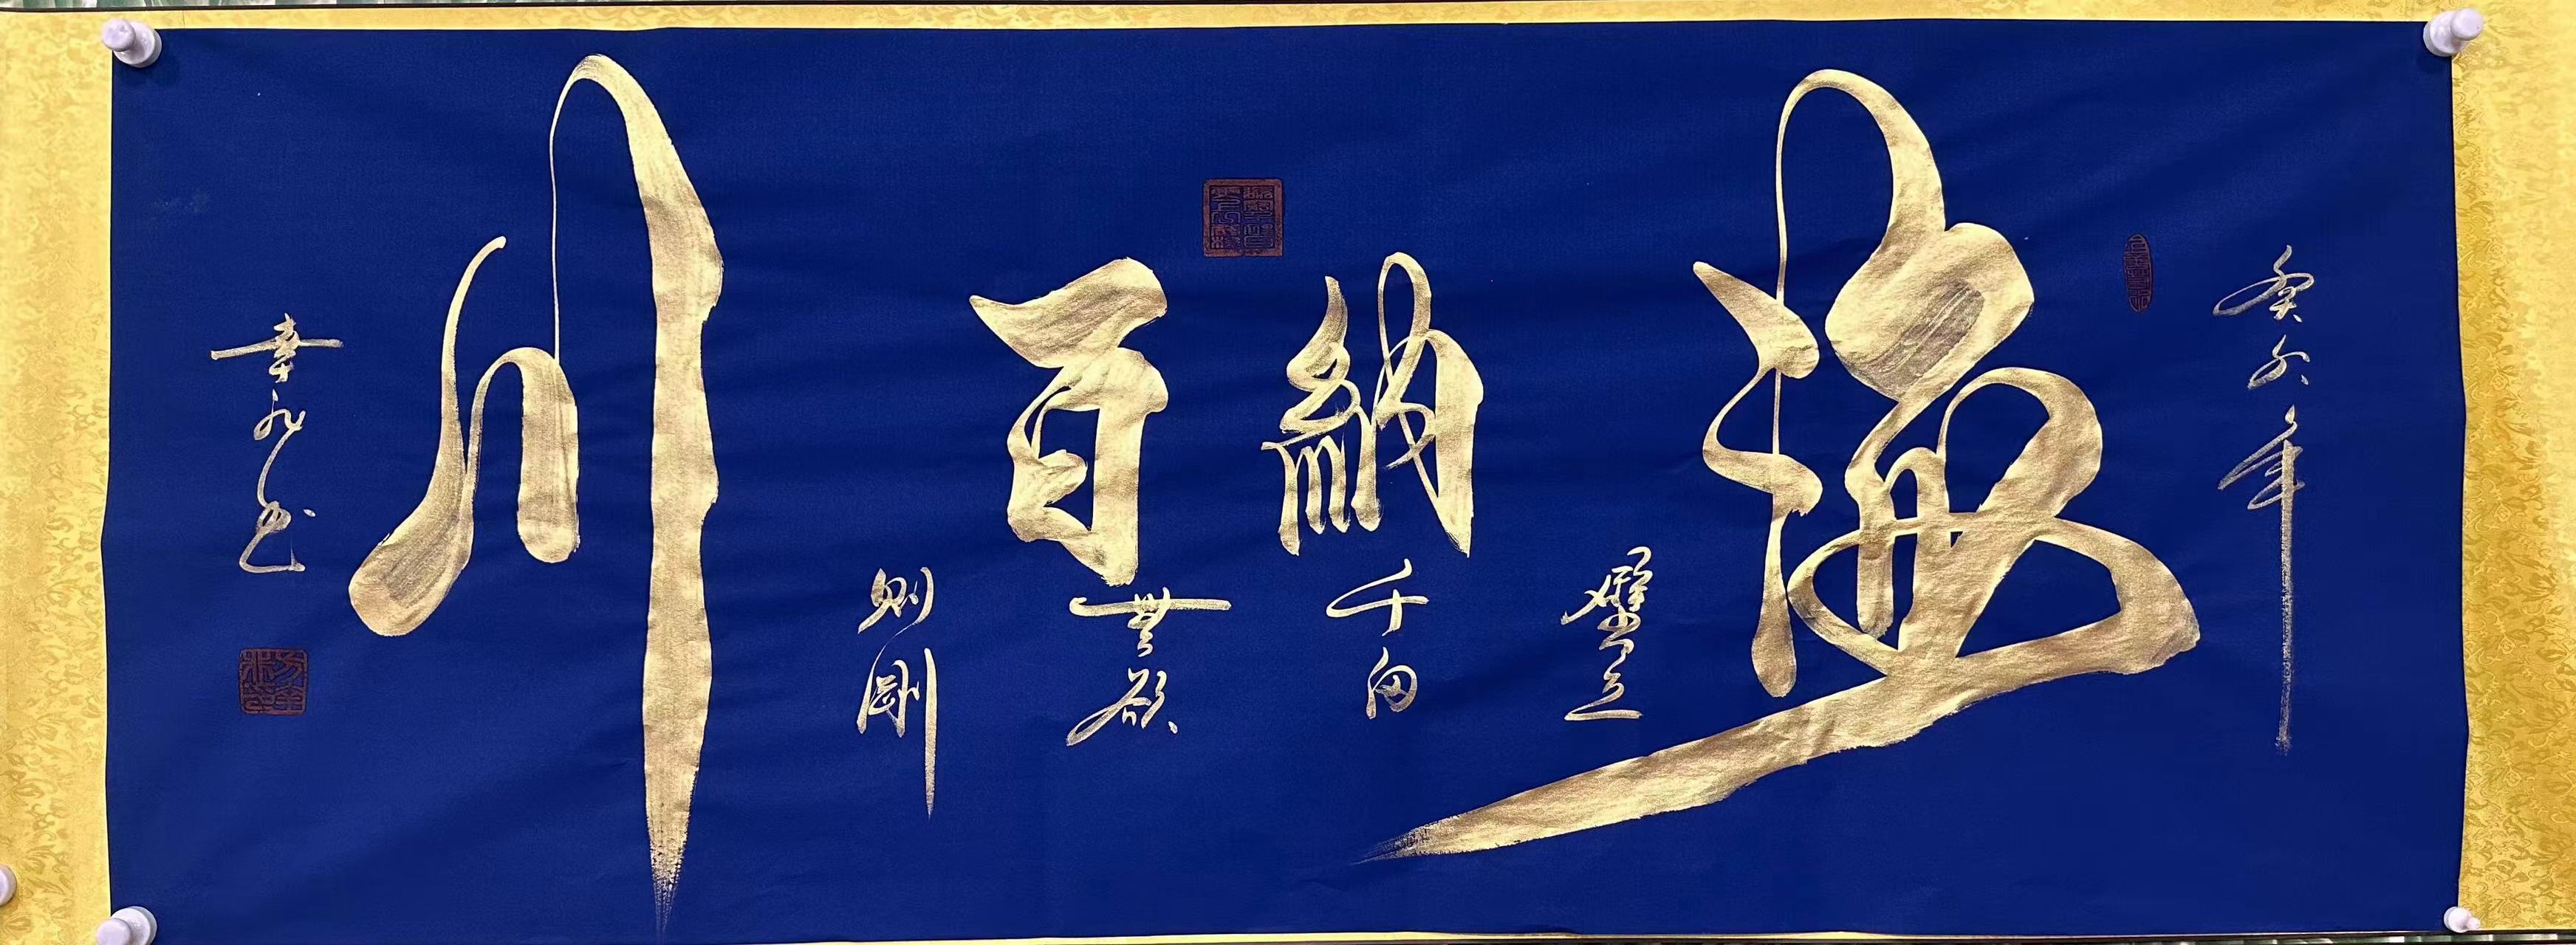 癸卯年
海納百川
壁立
千仞
無欲
則剛